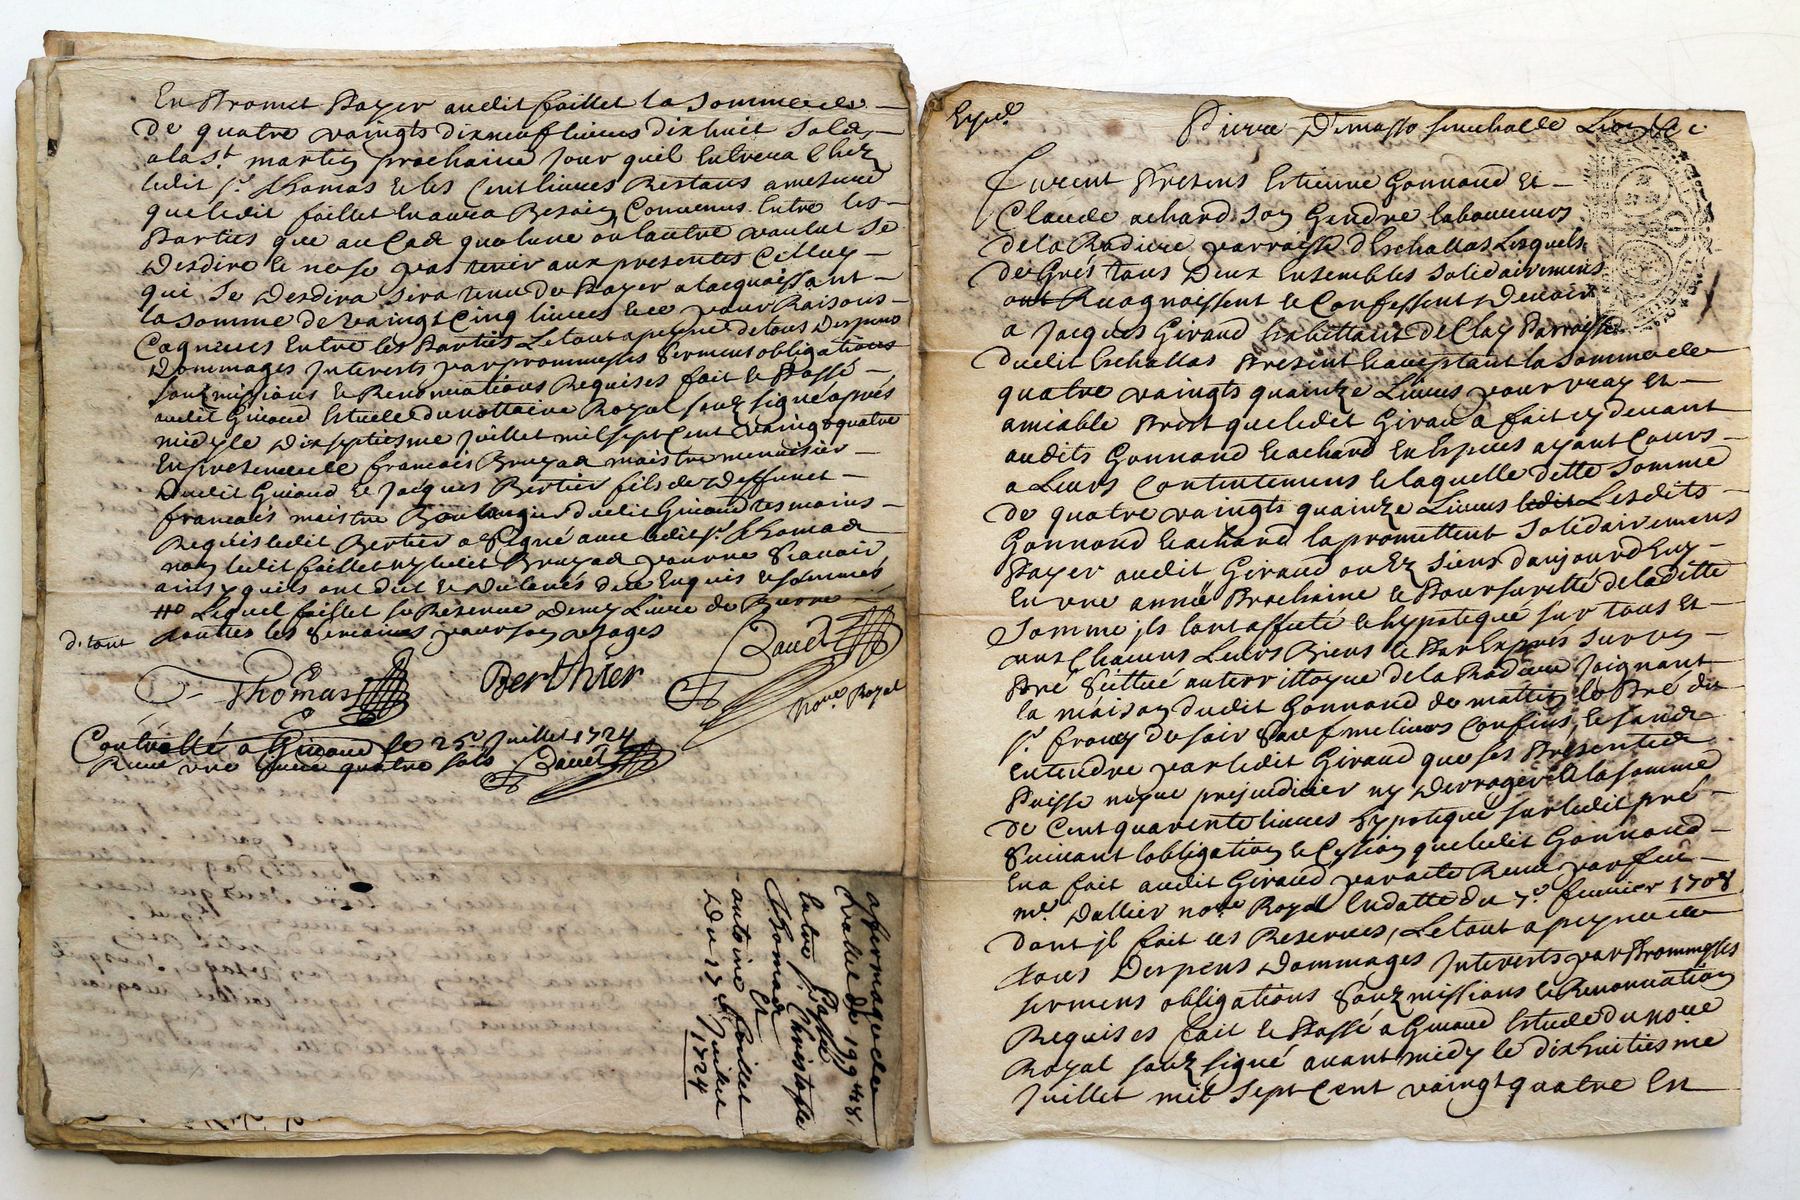 Et Promet Payer audit faillet la Somme de
de quatre vaingts dixneuf livres dixhuit Sols,
a la St. martin prochaine Jour quil Entrera Chez
ledit Sr. Thomas et les Cent livres Restans a mesure
que ledit faillet En aura Besoin, Convenus Entre les
Parties que au Cas que lune ou lautre voulut Se
Desdire et ne se pas tenir aux presentes Celluy
qui Se Desdira Sera tenu de Payer a lacquiessant
la Somme de vaingt Cinq livres pour Raisons
Cognues Entre les Parties Le tout a peyne de tous Despens
Dommages Interests par prommesses Serment obligations
Soubmissions et Renonciations Requises fait et Passé
audit Givord Estude du nottaire Royal soubz signé apres
midy le Dixseptiesme Juillet mil sept Cent vaingt quatre
En presence de francois Bruyas maistre menuisier
Dudit Givord et Jacques Bertier fils de Deffunct
francois maistre Boulanger dudit Givord tesmoins
Requis ledit Bertier a Signé avec ledit Sr. Thomas
non ledit faillet ny ledit Bruyas pour ne Scavoir
ainsy quils ont dit et declarés de ce Enquis et sommés
Lequel faillet se Reserve Demy Livre de Burre
touttes les Semaines pour son usages
d. tout
Thomas
Berthier
Baudt
Nore. Royal
Contrôllé a Givord le 25e Juillet 1724
Receu une livre quatre sols
Baudt
affermage de
vallet de 199 ₶ 18 s
Passé
Entre Sr. Christofle
Thomas
Et
antoine faillet
Du 17e Juillet
1724
Expé.
Pierre Dumasso
Furent Presens Estienne Gonnand Et
Claude achard Son Gendre laboureurs
de la Rodiere parroisse d'Eschallas Lesquels
de Grés tous Deux Ensembles Solidairement
ont Recognoissent et Confessent Devoir
a Jacques Giraud habittant de Clay Parroisse
dudit Eschallas Present et acceptant la Somme de
quatre vaingts quainze Livres pour vray Et
amiable Prest que ledit Giraud a fait cy devant
audits Gonnand et achard En Especes ayant Cours
a Leurs Contentemens et laquelle ditte Somme
de quatre vaingts quainze Livres ledit Lesdits
Gonnand et achard la promettent Solidairemens
Payer audit Giraud ou Ez Siens daujourdhuy
En une année Prochaine et Pour surretté de laditte
Somme ils lont affecté et hypotequé sur tous Et
uns Chacuns Leurs Biens et Par Expres Sur un
Pré Scittué au territtoyre de la Rodiere Joignant
la maison dudit Gonnand de mattin le Pré du
Sr. de soir Sauf meilieurs Confins, le sans
Entendre par ledit Giraud que ses Presentes
Puisse nuyre prejudicier ny Derroger a la somme
de Cent quarente livres hypotequé sur ledit pré
Suivant lobligation et Cession que ledit Gonnand
En a fait audit Giraud par acte Receu par feu
me. Dallier nore. Royal En datte du 7e. fevrier 1708
dont il fait ses Reserves, Le tout a peyne de
tous Despens Dommages Interests par Prommesses
Sermens obligations Soubz missions et Renonciation
Requises fait et Passé a Givord Estude du nore.
Royal soubz signé avant midy le dixhuitiesme
Juillet mil Sept Cent vaingt quatre En